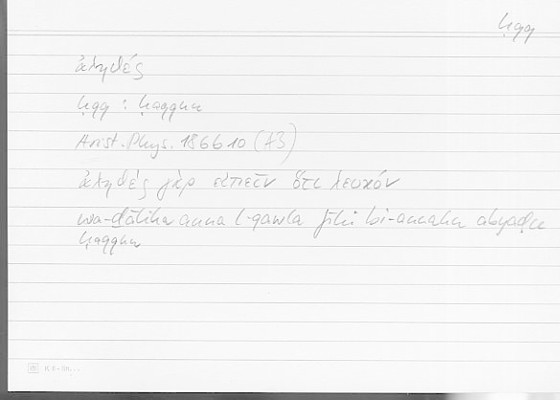 ḥqq
ἀληθές
ḥqq : ḥaqqun
Arist. Phys. 186b10 (A3)
ἀληθές γὰρ εἰπεῖν ὅτι λευκόν
wa-ḏālika anna l-qawla fīhi bi-annahu abyaḍu
ḥaqqun